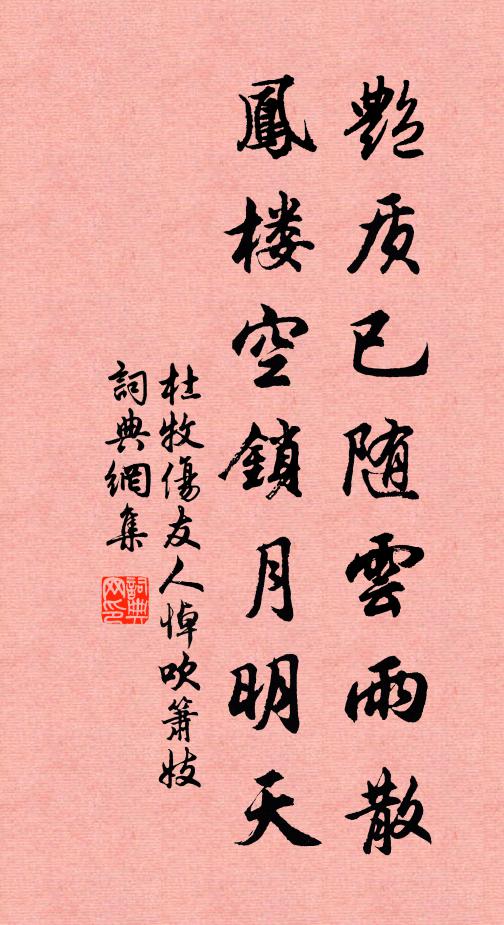 艷质已随雲雨散
鳳楼空鎖月明天
杜牧傷友人悼吹簫妓
詞典網集
詞典網印